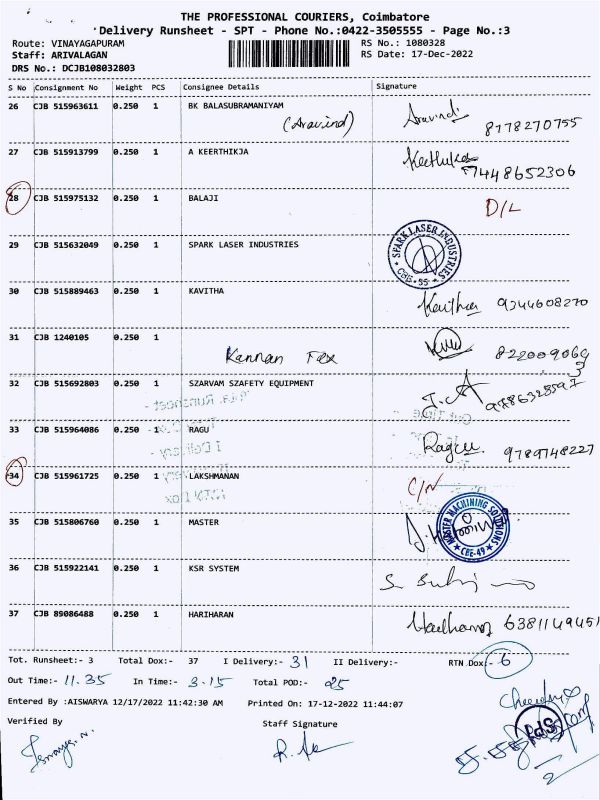 THE PROFESSIONAL COURIERS, Coimbatore
Delivery Runsheet - SPT - Phone No.:0422-3505555 - Page No.:3
Route: VINAYAGAPURAM RS No.: 1080328
Staff: ARIVALAGAN RS Date: 17-Dec-2022
DRS No.: DCJB108032803
S No Consignment No Weight PCS Consignee Details Signature
26 CJB 515963611 0.250 1 BK BALASUBRAMANIYAM
(Aravind) Aravind 8178270755
27 CJB 515913799 0.250 1 A KEERTHIKJA
7448652306
28 CJB 515975132 0.250 1 BALAJI D/L
29 CJB 515632049 0.250 1 SPARK LASER INDUSTRIES
SPARK LASER INDUSTRIES CBE-35
30 CJB 515889463 0.250 1 KAVITHA
Kavitha 9344608270
31 CJB 1240105 0.250 1
Kannan Tex
32 CJB 515692803 0.250 1 SZARVAM SZAFETY EQUIPMENT
33 CJB 515964086 0.250 1 RAGU
Ragu 9789748227
34 CJB 515961725 0.250 1 LAKSHMANAN C/N
35 CJB 515806760 0.250 1 MASTER
MASTER MACHINING SOLUTIONS CBE-49
36 CJB 515922141 0.250 1 KSR SYSTEM
37 CJB 89086488 0.250 1 HARIHARAN
6381149451
Tot. Runsheet:- 3 Total Dox:- 37 I Delivery:- 31 II Delivery:- RTN Dox:- 6
Out Time:- 11.35 In Time:- 3.15 Total POD:- 25
Entered By :AISWARYA 12/17/2022 11:42:30 AM Printed On: 17-12-2022 11:44:07
Verified By Staff Signature